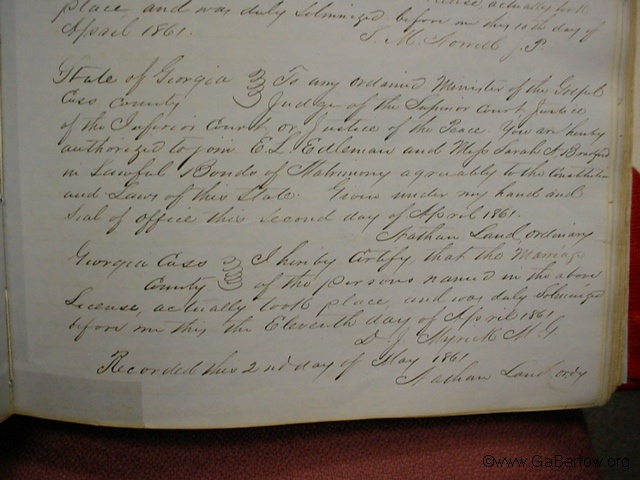 place, and was duly Solmnized before me this 10th day of
April 1861. S. M. Howell J. P.
State of Georgia To any ordained Minister of the Gospel
Cass County Judge of the Superior Court, Justice
of the Inferior Court, or Justice of the Peace. You are hereby
authorized to join E. L. Edleman and Miss Sarah A.
in Lawful Bonds of Matrimony agreeably to the Constitution
and Laws of this State. Given under my hand and
Seal of office this Second day of April 1861.
Nathan Land, ordinary
Georgia Cass I hereby Certify, that the Marriage
County of the persons named in the above
License, actually took place, and was duly Solmnized
before me this the Eleventh day of April 1861
D. J. Myrick M. G.
Recorded this 2nd day of May 1861
Nathan Land ordy
©www.GaBartow.org